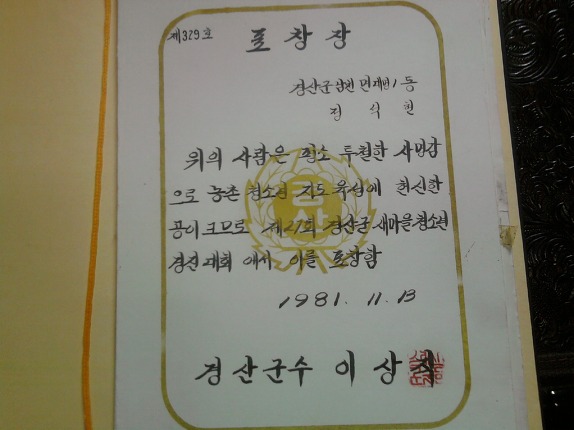 제329호
표창장
경산군 남천면 대명1동
정 식 현
위의 사람은 평소 투철한 사명감
으로 농촌 청소년 지도육성에 헌신한
공이 크므로 제27회 경산군 새마을청소년
경진대회 에서 이를 표창함
1981. 11. 13
경산군수 이상
금상